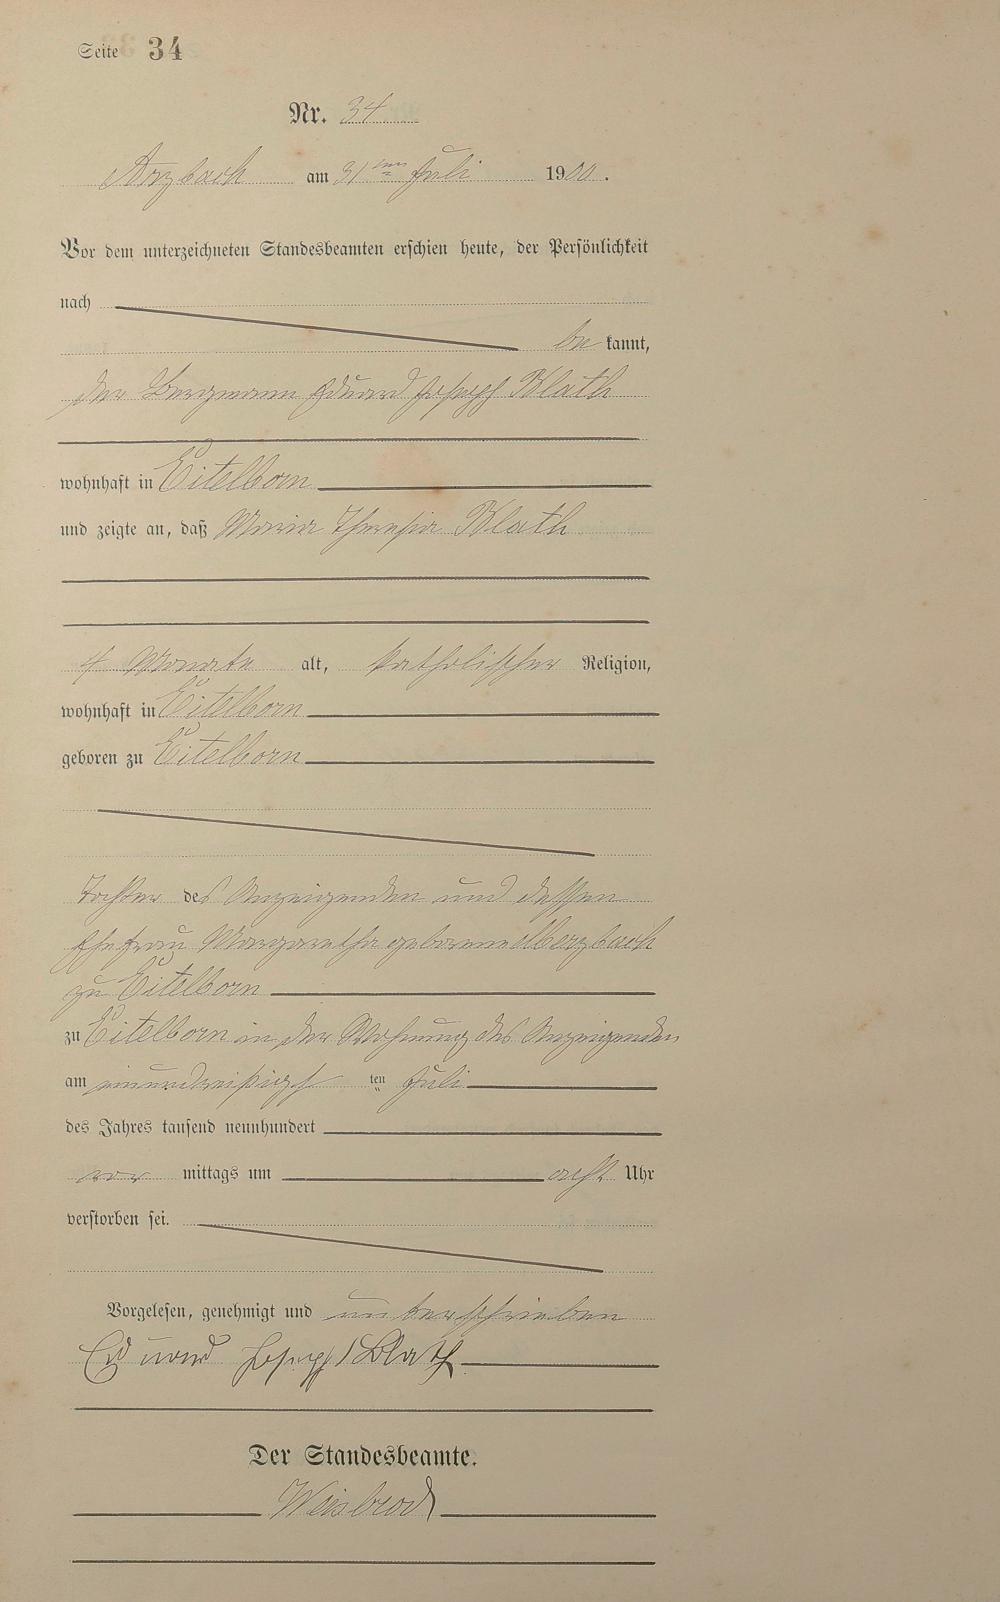 Seite 34
Nr. 34
Arzbach am 31ten Juli 1900.
Vor dem unterzeichneten Standesbeamten erschien heute, der Persönlichkeit
nach
be kannt,
der Bergmann Eduard Joseph Blath
wohnhaft in Eitelborn
und zeigte an, daß Maria Theresia Blath
4 Monate alt, katholischer Religion,
wohnhaft in Eitelborn
geboren zu Eitelborn
Tochter des Anzeigenden und dessen
Ehefrau Margaretha geborene
zu Eitelborn
zu Eitelborn in der Wohnung des Anzeigenden
am einunddreißigs ten Juli
des Jahres tausend neunhundert
vor mittags um acht Uhr
verstorben sei.
Vorgelesen, genehmigt und unterschrieben
Eduard Joseph Blath
Der Standesbeamte.
Weisbrod